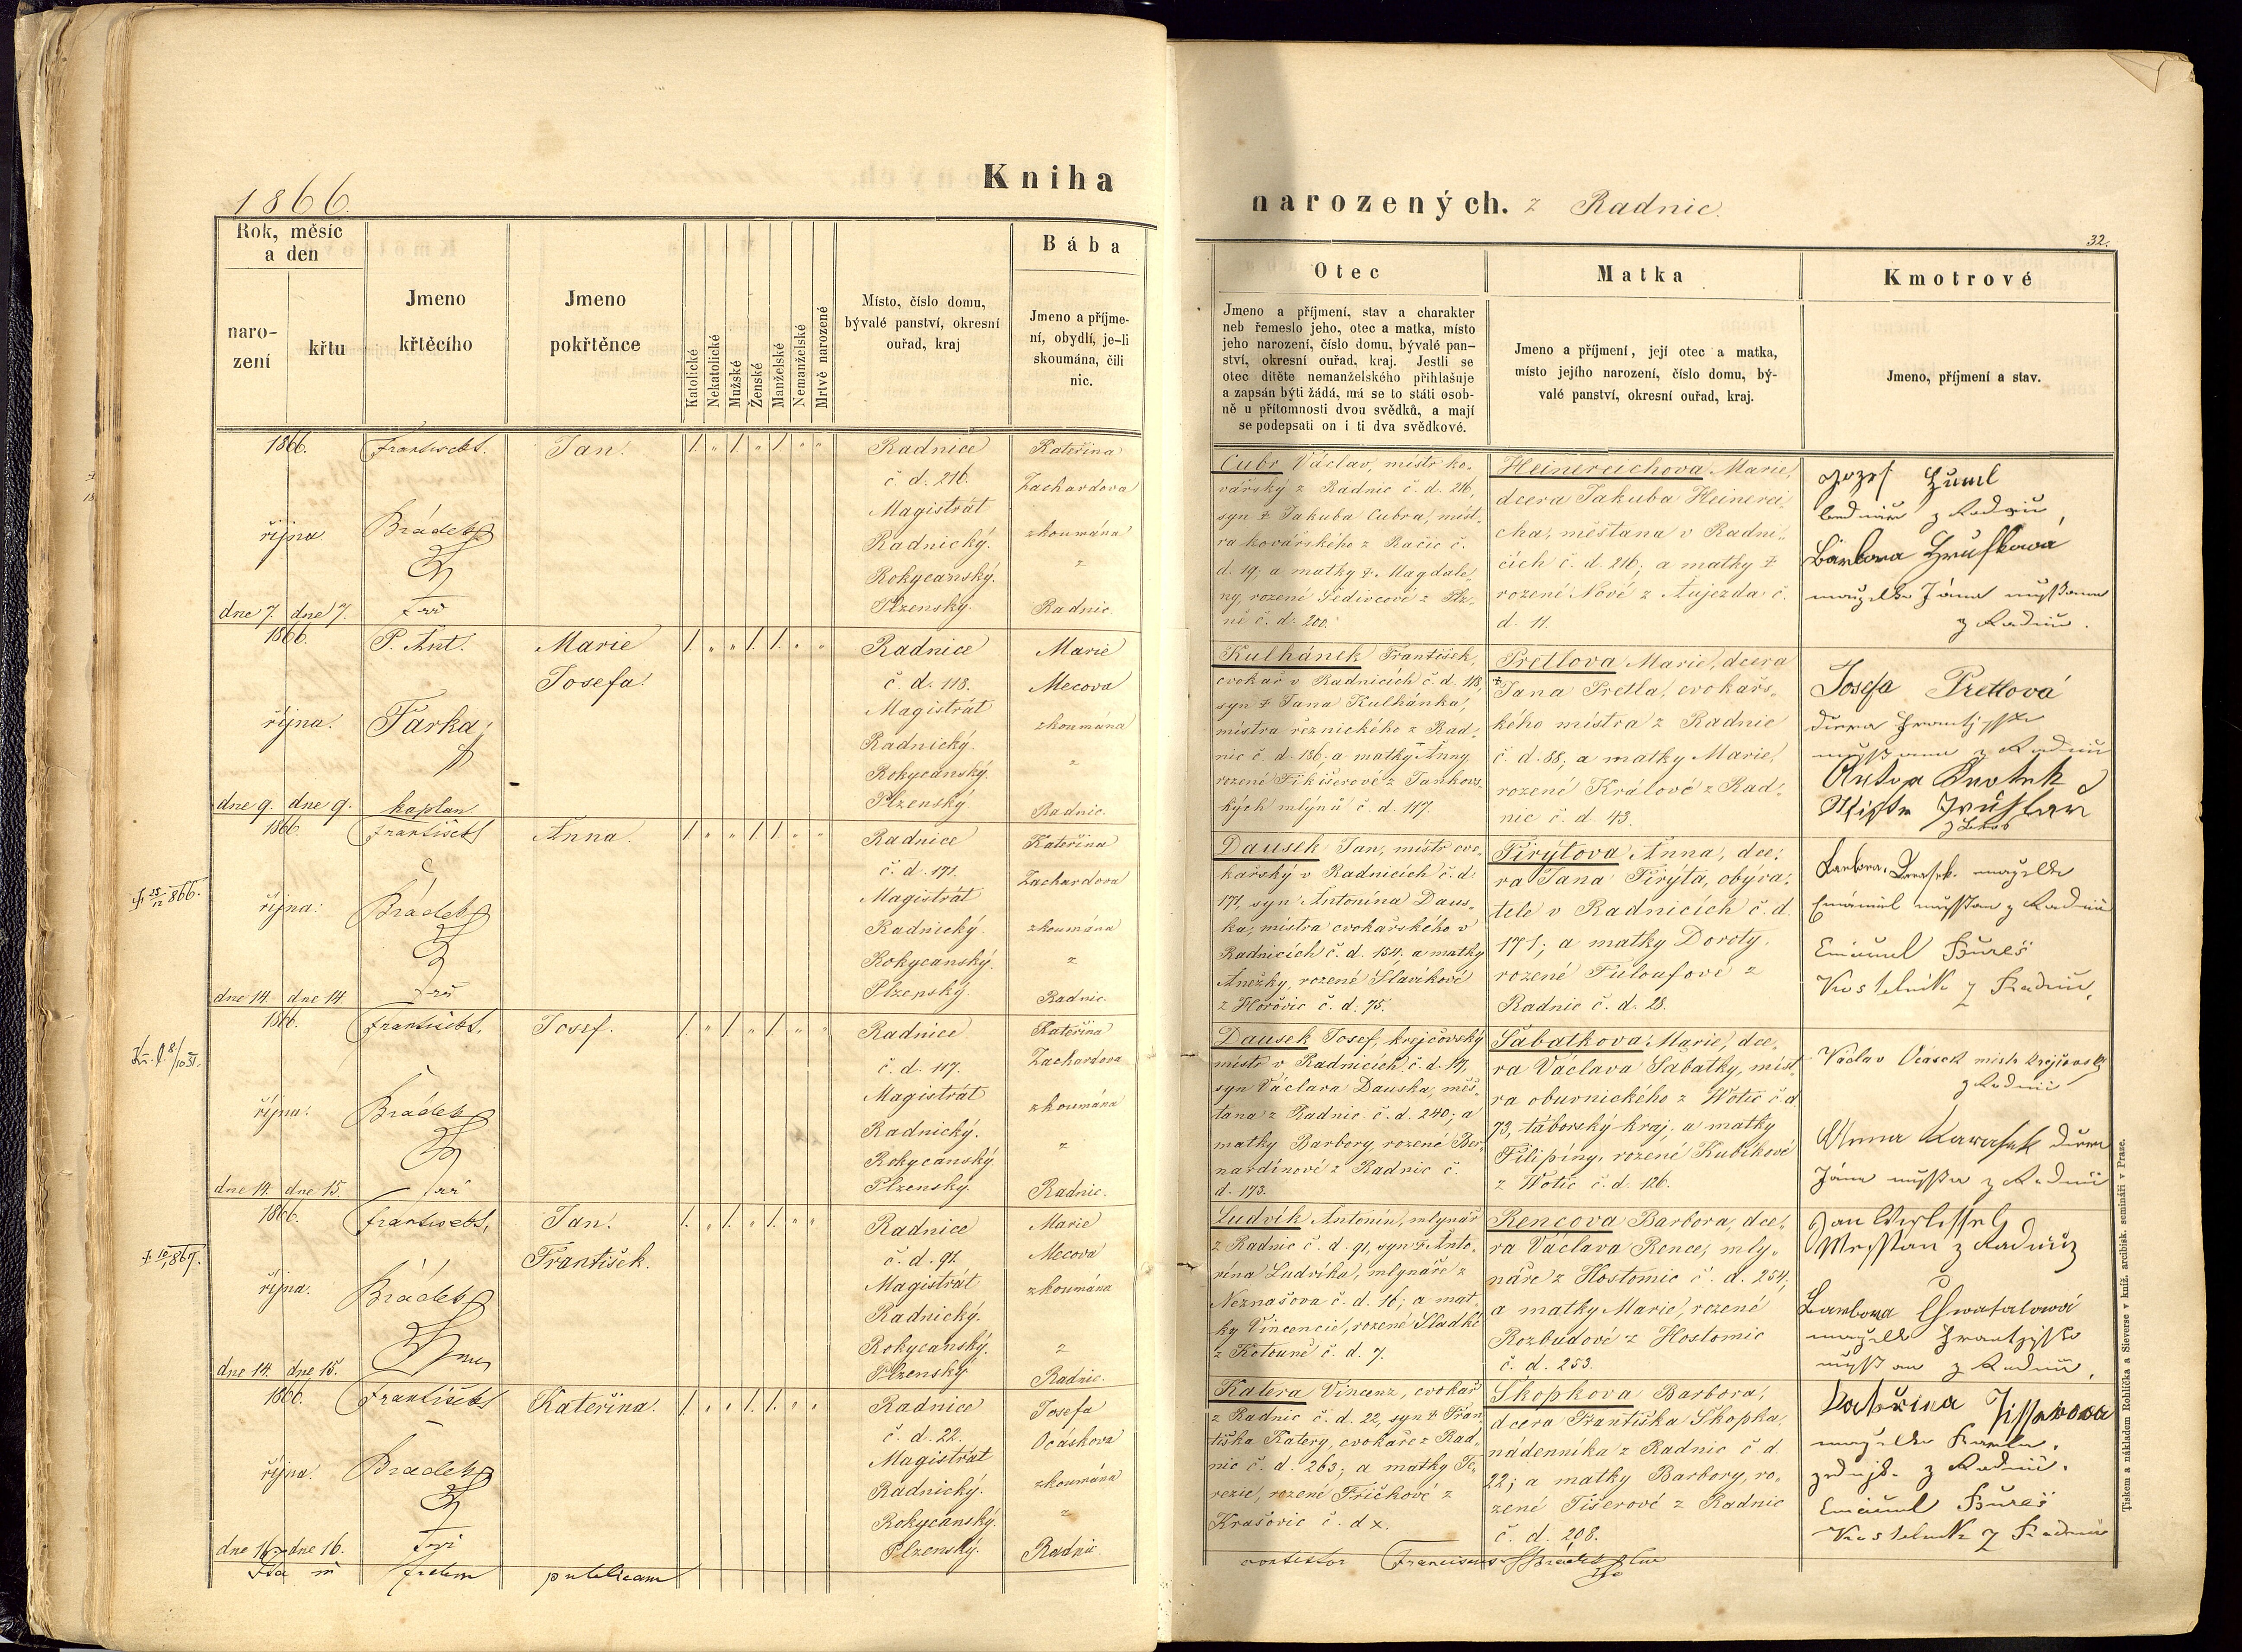 1866.
Kniha
narozených. z Radnic.
32.
Rok, měsíc
a den
naro-
zení
křtu
Jmeno
křtěcího
Jmeno
pokřtěnce
Katolické
Nekatolické
Mužské
Ženské
Manželské
Nemanželské
Mrtvě narozené
Místo, číslo domu,
bývalé panství, okresní
ouřad, kraj
Bába
Jmeno a příjme-
ní, obydlí, je-li
skoumána, čili
nic.
Otec
Jmeno a příjmení, stav a charakter
neb řemeslo jeho, otec a matka, místo
jeho narození, číslo domu, bývalé pan-
ství, okresní ouřad, kraj. Jestli se
otec dítěte nemanželského přihlašuje
a zapsán býti žádá, má se to státi osob-
ně u přítomnosti dvou svědků, a mají
se podepsati on i ti dva svědkové.
Matka
Jmeno a příjmení, její otec a matka,
místo jejího narození, číslo domu, bý-
valé panství, okresní ouřad, kraj.
Kmotrové
Jmeno, příjmení a stav.
1866.
října
dne 7. dne 7.
Brádek
Jan.
Radnice
č. d. 216.
Magistrát
Radnický.
Rokycanský.
Plzenský.
Kateřina
Zachardova
zkoumána
z
Radnic.
Cubr Václav, mistr ko-
vářský z Radnic č. d. 216,
syn † Jakuba Cubra, mist-
ra kovářského z Račic č.
d. 19; a matky † Magdale-
ny, rozené Šedivcové z Plz-
ně č. d. 200.
Heinereichova Marie,
dcera Jakuba Heinerei-
cha, měšťana v Radni-
cích č. d. 216; a matky †
rozené Nové z Aujezda č.
d. 11.
Barbora
1866.
října.
dne 9. dne 9.
P. Ant.
Farka,
kaplan
Marie
Josefa.
Radnice
č. d. 118.
Magistrát
Radnický.
Rokycanský.
Plzenský
Marie
Mecova
zkoumána
z
Radnic.
Kulhánek František,
cvokař v Radnicích č. d. 118,
syn † Jana Kulhánka,
mistra řeznického z Rad-
nic č. d. 186; a matky Anny,
rozené Fikišerové z Jankovs-
kých mlýnů č. d. 117.
Pretlova Marie, dcera
† Jana Pretla, cvokařs-
kého mistra z Radnic
č. d. 88; a matky Marie,
rozené Králové z Rad-
nic č. d. 43.
Josefa Pretlová
1866.
října:
dne 14. dne 14.
František
Brádek
Anna.
Radnice
č. d. 171.
Magistrát
Radnický.
Rokycanský.
Plzenský
Kateřina
Zachardova
zkoumána
z
Radnic.
Dausek Jan, mistr cvo-
kařský v Radnicích č. d.
171, syn Antonína Daus-
ka, mistra cvokařského v
Radnicích č. d. 154. a matky
Anežky, rozené Slavíkové
z Hořovic č. d. 75.
Pirýtova Anna, dce-
ra Jana Pirýta, obýva-
tele v Radnicích č. d.
171; a matky Doroty,
rozené Fuloufové z
Radnic č. d. 28.
Emanuel Bureš
Kostelník z Radnic,
1866.
října.
dne 14. dne 15.
František
Brádek
Josef.
Radnice
č. d. 117.
Magistrát
Radnický.
Rokycanský
Plzenský.
Kateřina
Zachardova
zkoumána
z
Radnic.
Dausek Josef, krejčovský
mistr v Radnicích č. d. 117,
syn Václava Dauska, měš-
ťana z Radnic č. d. 240; a
matky Barbory, rozené Ber-
nardinové z Radnic č.
d. 173.
Sabatkova Marie, dce-
ra Václava Sabatky, mist-
ra obuvnického z Wotic č. d.
73, táborský kraj; a matky
Filipíny, rozené Kubíkové
z Wotic č. d. 126.
Václav Ocásek mistr krejčovský
z Radnic
Anna
1866.
října.
dne 14. dne 15.
Brádek
Jan.
František.
Radnice
č. d. 91.
Magistrát
Radnický.
Rokycanský.
Plzenský
Marie
Mecova
zkoumána
z
Radnic.
Ludvík Antonín, mlynář
z Radnic č. d. 91, syn † Anto-
nína Ludvíka, mlynáře z
Neznašova č. d. 16; a mat-
ky Vincencie, rozené Sladké
z Kotouně č. d. 7.
Rencova Barbora, dce-
ra Václava Rence, mly-
náře z Hostomic č. d. 254,
a matky Marie, rozené
Rozbudové z Hostomic
č. d. 253.
Barbora Chwatalowá
1866.
října.
dne 16. dne 16.
František
Brádek
Kateřina.
Radnice
č. d. 22.
Magistrát
Radnický.
Rokycanský.
Plzenský.
Josefa
Ocáskova
zkoumána
z
Radnic.
Katera Vincenz, cvokař
z Radnic č. d. 22, syn † Fran-
tiška Katery, cvokaře z Rad-
nic č. d. 263; a matky Te-
rezie, rozené Fričkové z
Krašovic č. d x.
Skopkova Barbora,
dcera Františka Skopka,
nádenníka z Radnic č. d.
22; a matky Barbory, ro-
zené Tišerové z Radnic
č. d. 208.
Kateřina
Emanuel Bureš
Kostelník z Radnic
Ita in fidem publicam
contestor Franciscus Brádek
Tiskem a nákladem Rohlíčka a Sieverse v kníž. arcibisk. semináři v Praze.